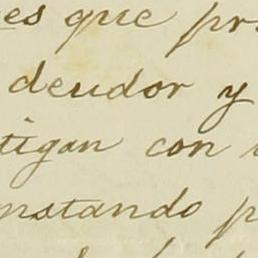 es que pr
deudor y
tigan con
nstando p